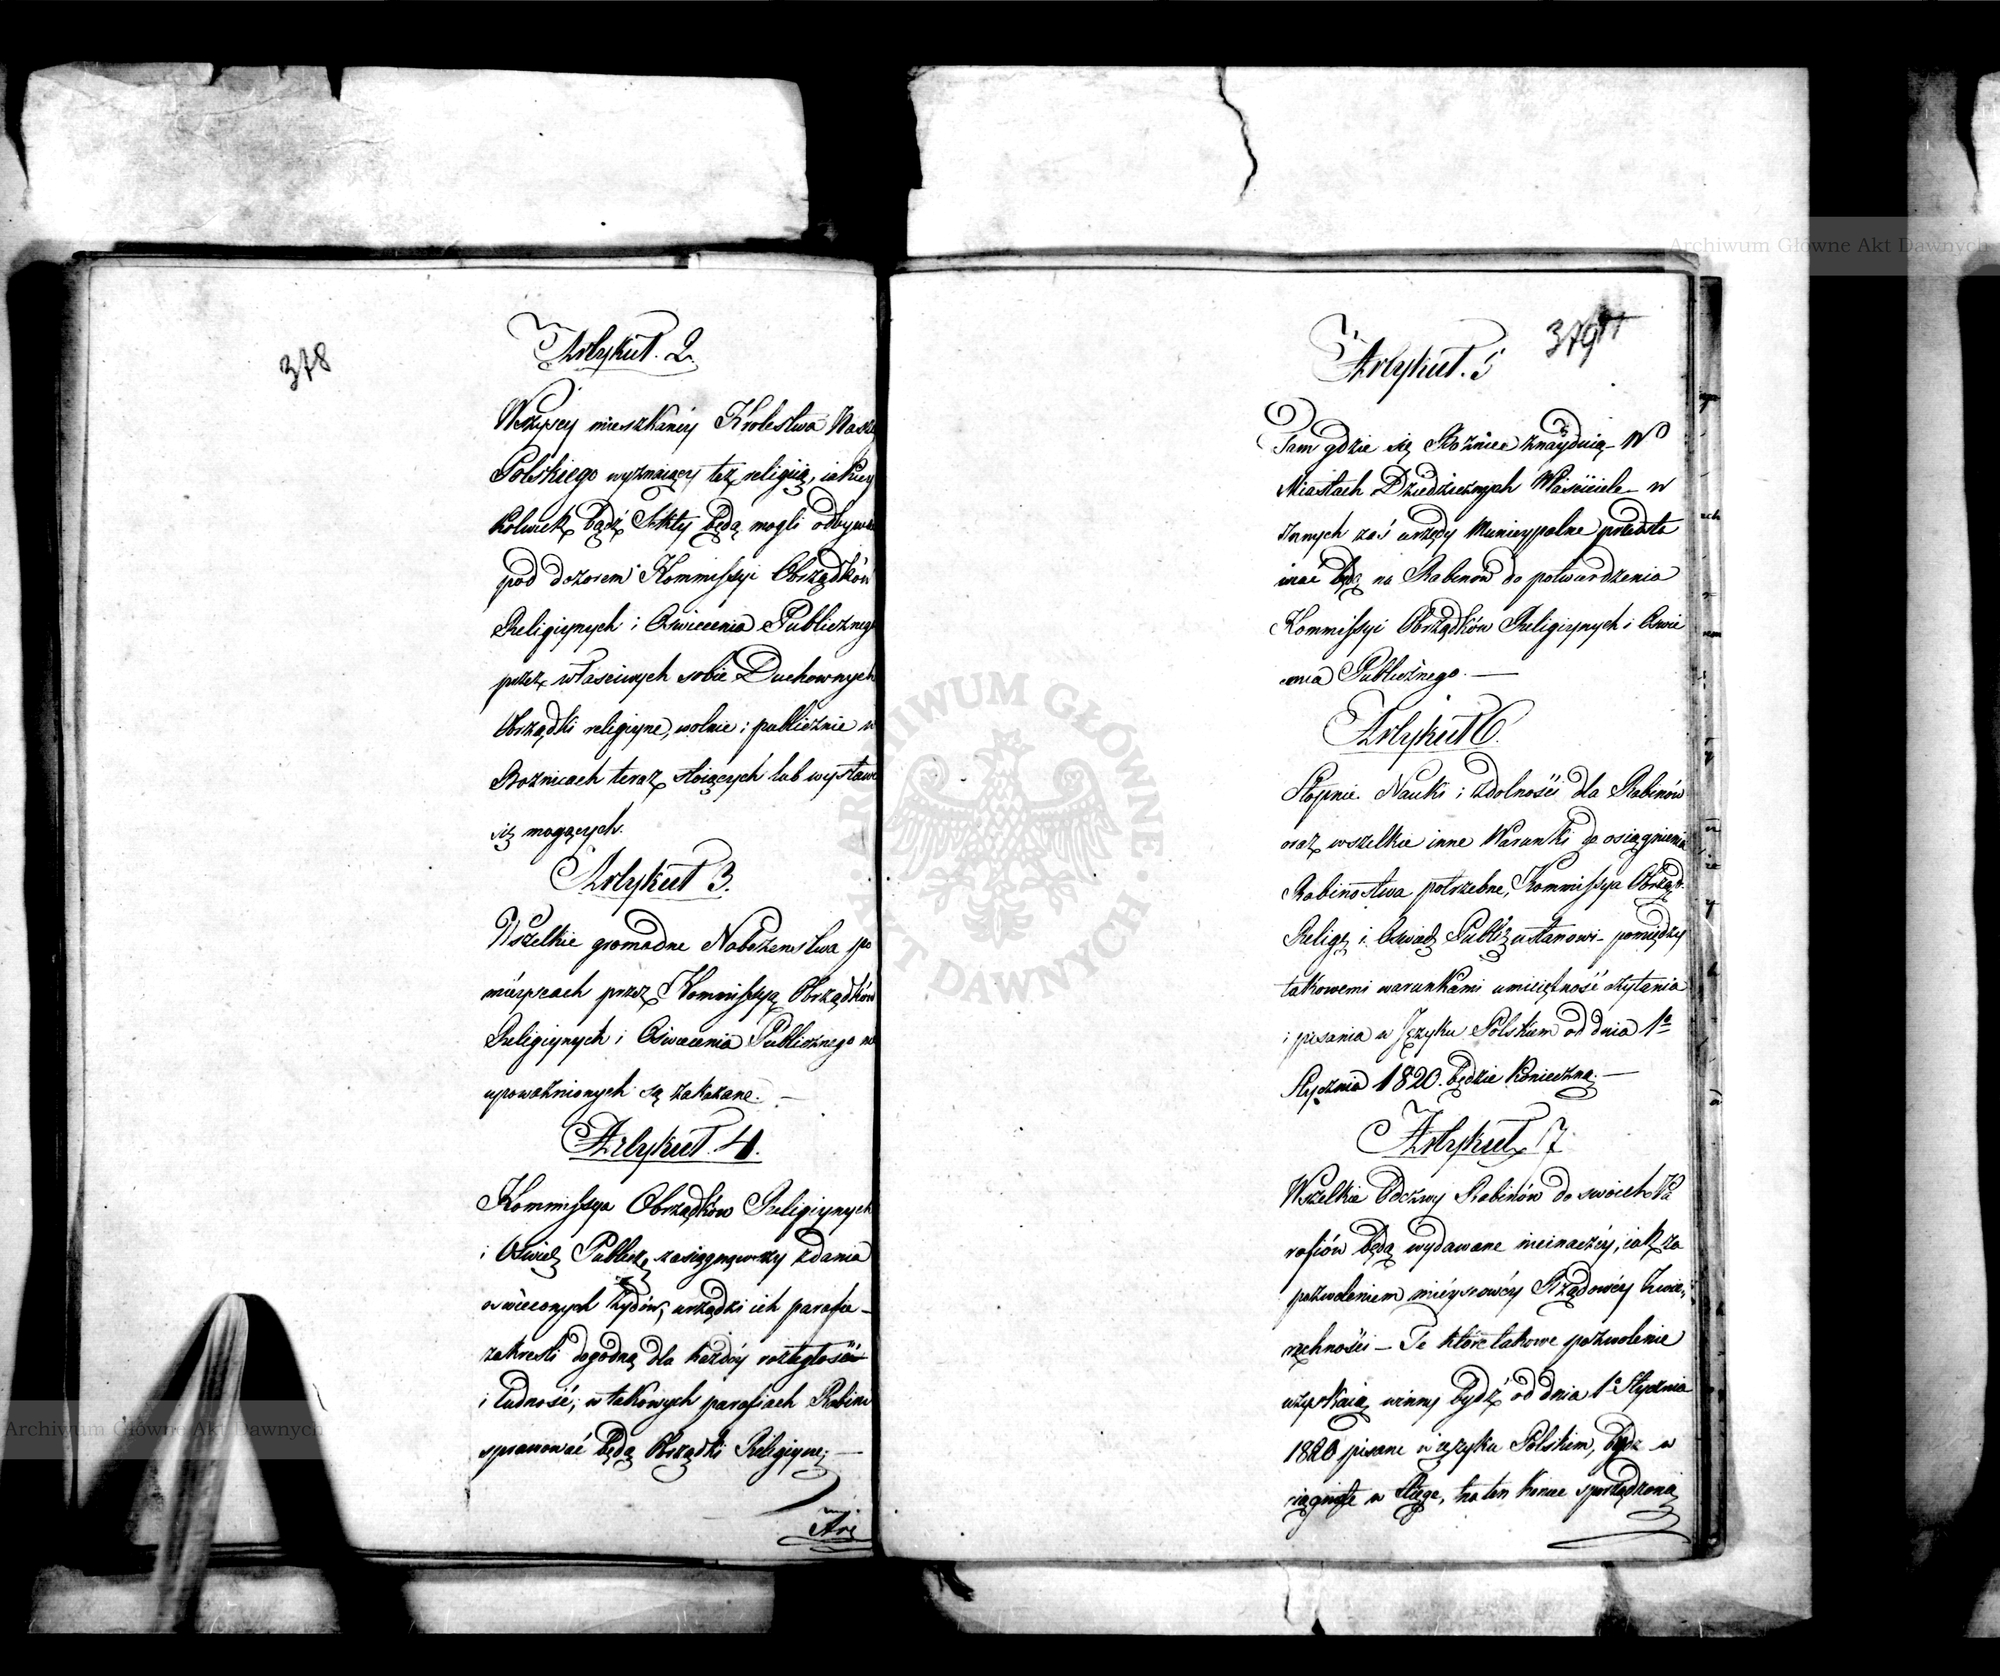 378
Artykuł. 2.
Wszyscy mieszkańcy Krolestwa Nasze
Polskiego wyznaiący tęż religiią, iakiey
kolwiek bądź Sekty będą mogli odbywa
pod dozorem Kommissyi Obrządków
Religiynych i Oswiecenia Publicznego
przez właściwych sobie Duchownych
Obrządki religiyne, wolnie i publicznie w
Boznicach teraz stoiących lub wystawi
się mogących.
Artykuł 3.
Wszelkie gromadne Nabożenstwa po
mieyscach przez Kommissyą Obrządków
Religiynych i Oswiecenia Publicznego nie
upoważnionych są zakazane. —
Artykuł. 4.
Kommissya Obrządków Religiynych
i Oświec Publicz zasiągnąwszy zdania
oswieconych Żydów, urządzi ich parafie —
zakresli dogodną dla każdéy rozległość
i ludność; w takowych parafiach Rabini
sprawować będą Obrządki Religiyne. —
Art
379
Artykuł. 5
Tam gdzie się Bożnice znayduią — W
Miastach Dziedzicznych Właściciele — w
Innych zaś urzędy Municypalne przedsta
wiać będą na Rabinów do potwierdzenia
Kommissyi Obrządków Religiynych i Oswie
cenia Publicznego. —
Artykuł 6.
Stopnie Nauki i zdolności dla Rabinów
oraz wszelkie inne Warunki do osiągnienia
Rabinostwa potrzebne, Kommissya Obrząd.
Relig i Oswiec Public ustanowi — pomiędzy
takowemi warunkami umieiętność czytania
i pisania w Języku Polskim od dnia 1º
Stycznia 1820. będzie konieczną. —
Artykuł 7
Wszelkie Odezwy Rabinów do swoich Pa
rafiów będą wydawane nieinaczéy, iak za
pozwoleniem mieyscowéy Rządowéy Zwie„
rzchności — Te które takowe pozwolenie
uzyskaią winny bydź od dnia 1º Stycznia
1820 pisane w ięzyku Polskim, bydź w
ciągnięte w Xięgę, na ten koniec sporządzoną
Archiwum Główne Akt Dawnych
Archiwum Główne Akt Dawnych
ARCHIWUM GŁÓWNE · AKT DAWNYCH ·